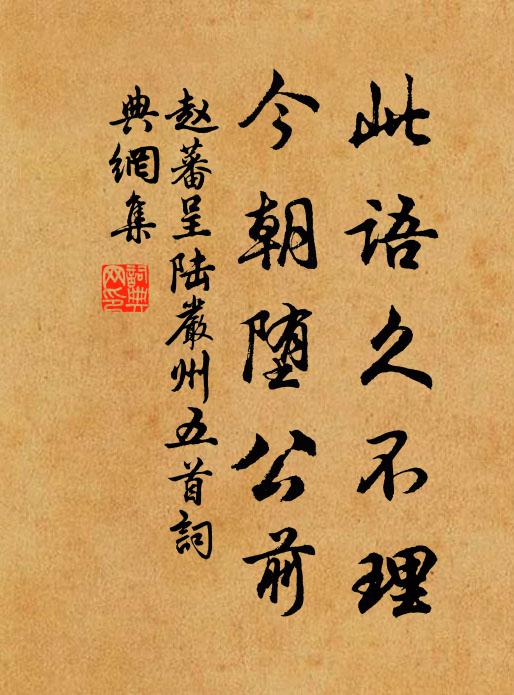 此语久不理
今朝堕公前
赵蕃呈陆严州五首词
典网集
词典网印